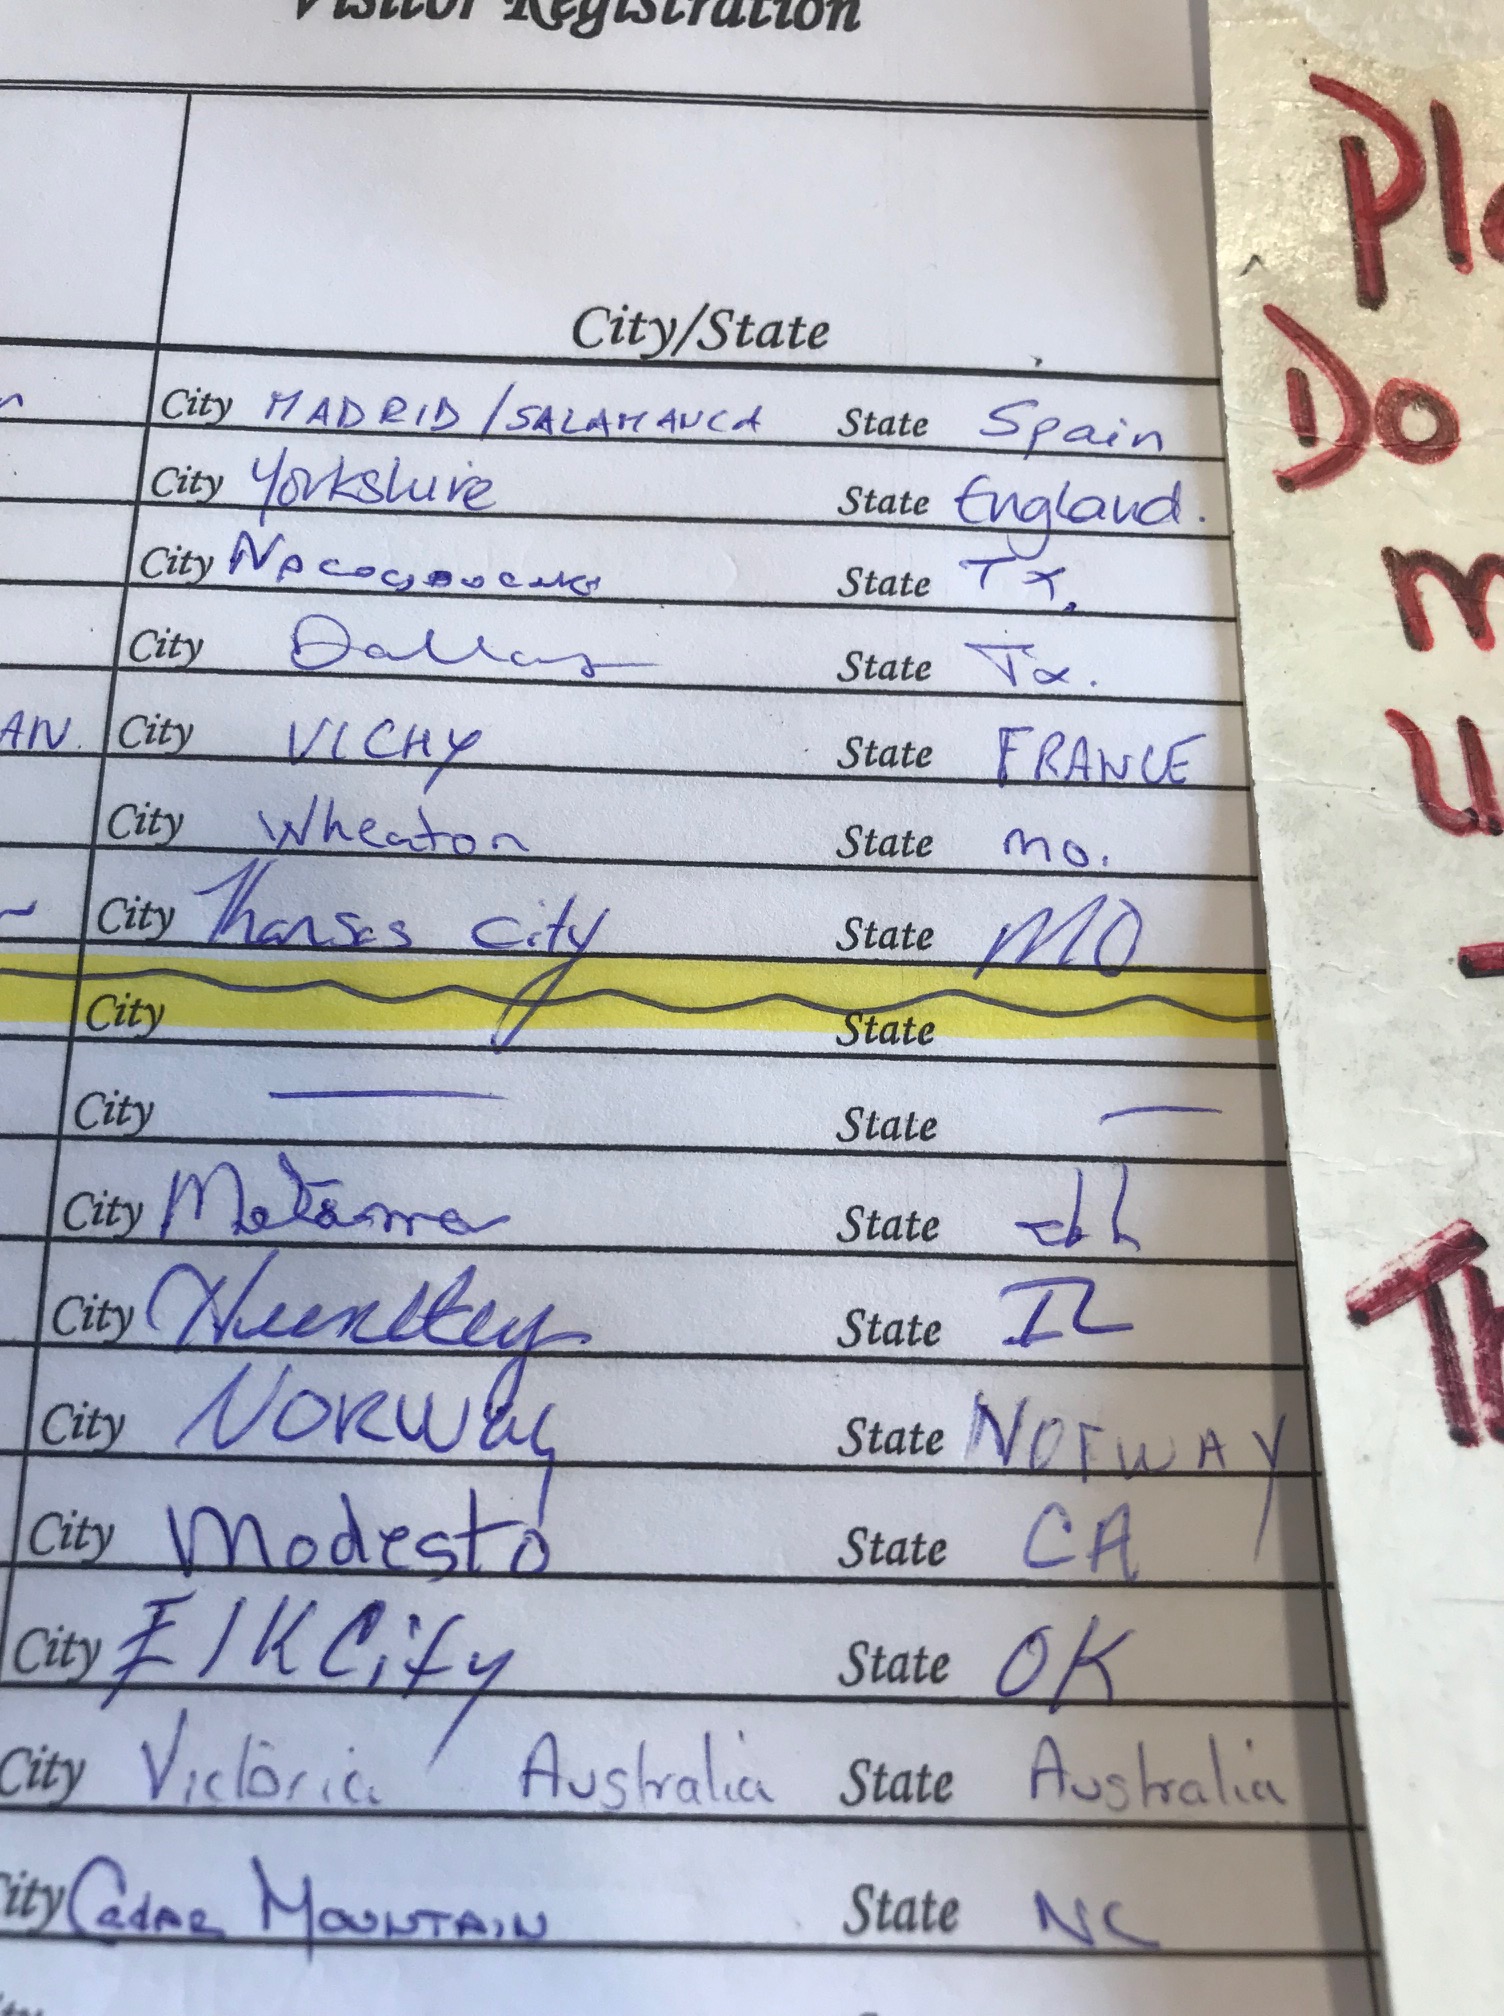 Visitor Registration
City/State
City MADRID/SALAMANCA State Spain
City Yorkshire State England.
City Nacogdoches State Tx.
City Dallas State Tx.
AN. City VICHY State FRANCE
City Wheaton State mo.
City Kansas City State MO
City State
City State
City Metamora State
City Huntley State IL
City NORWAY State NORWAY
City Modesto State CA
City Elk City State OK
City Victoria Australia State Australia
City Cedar Mountain State NC
Do